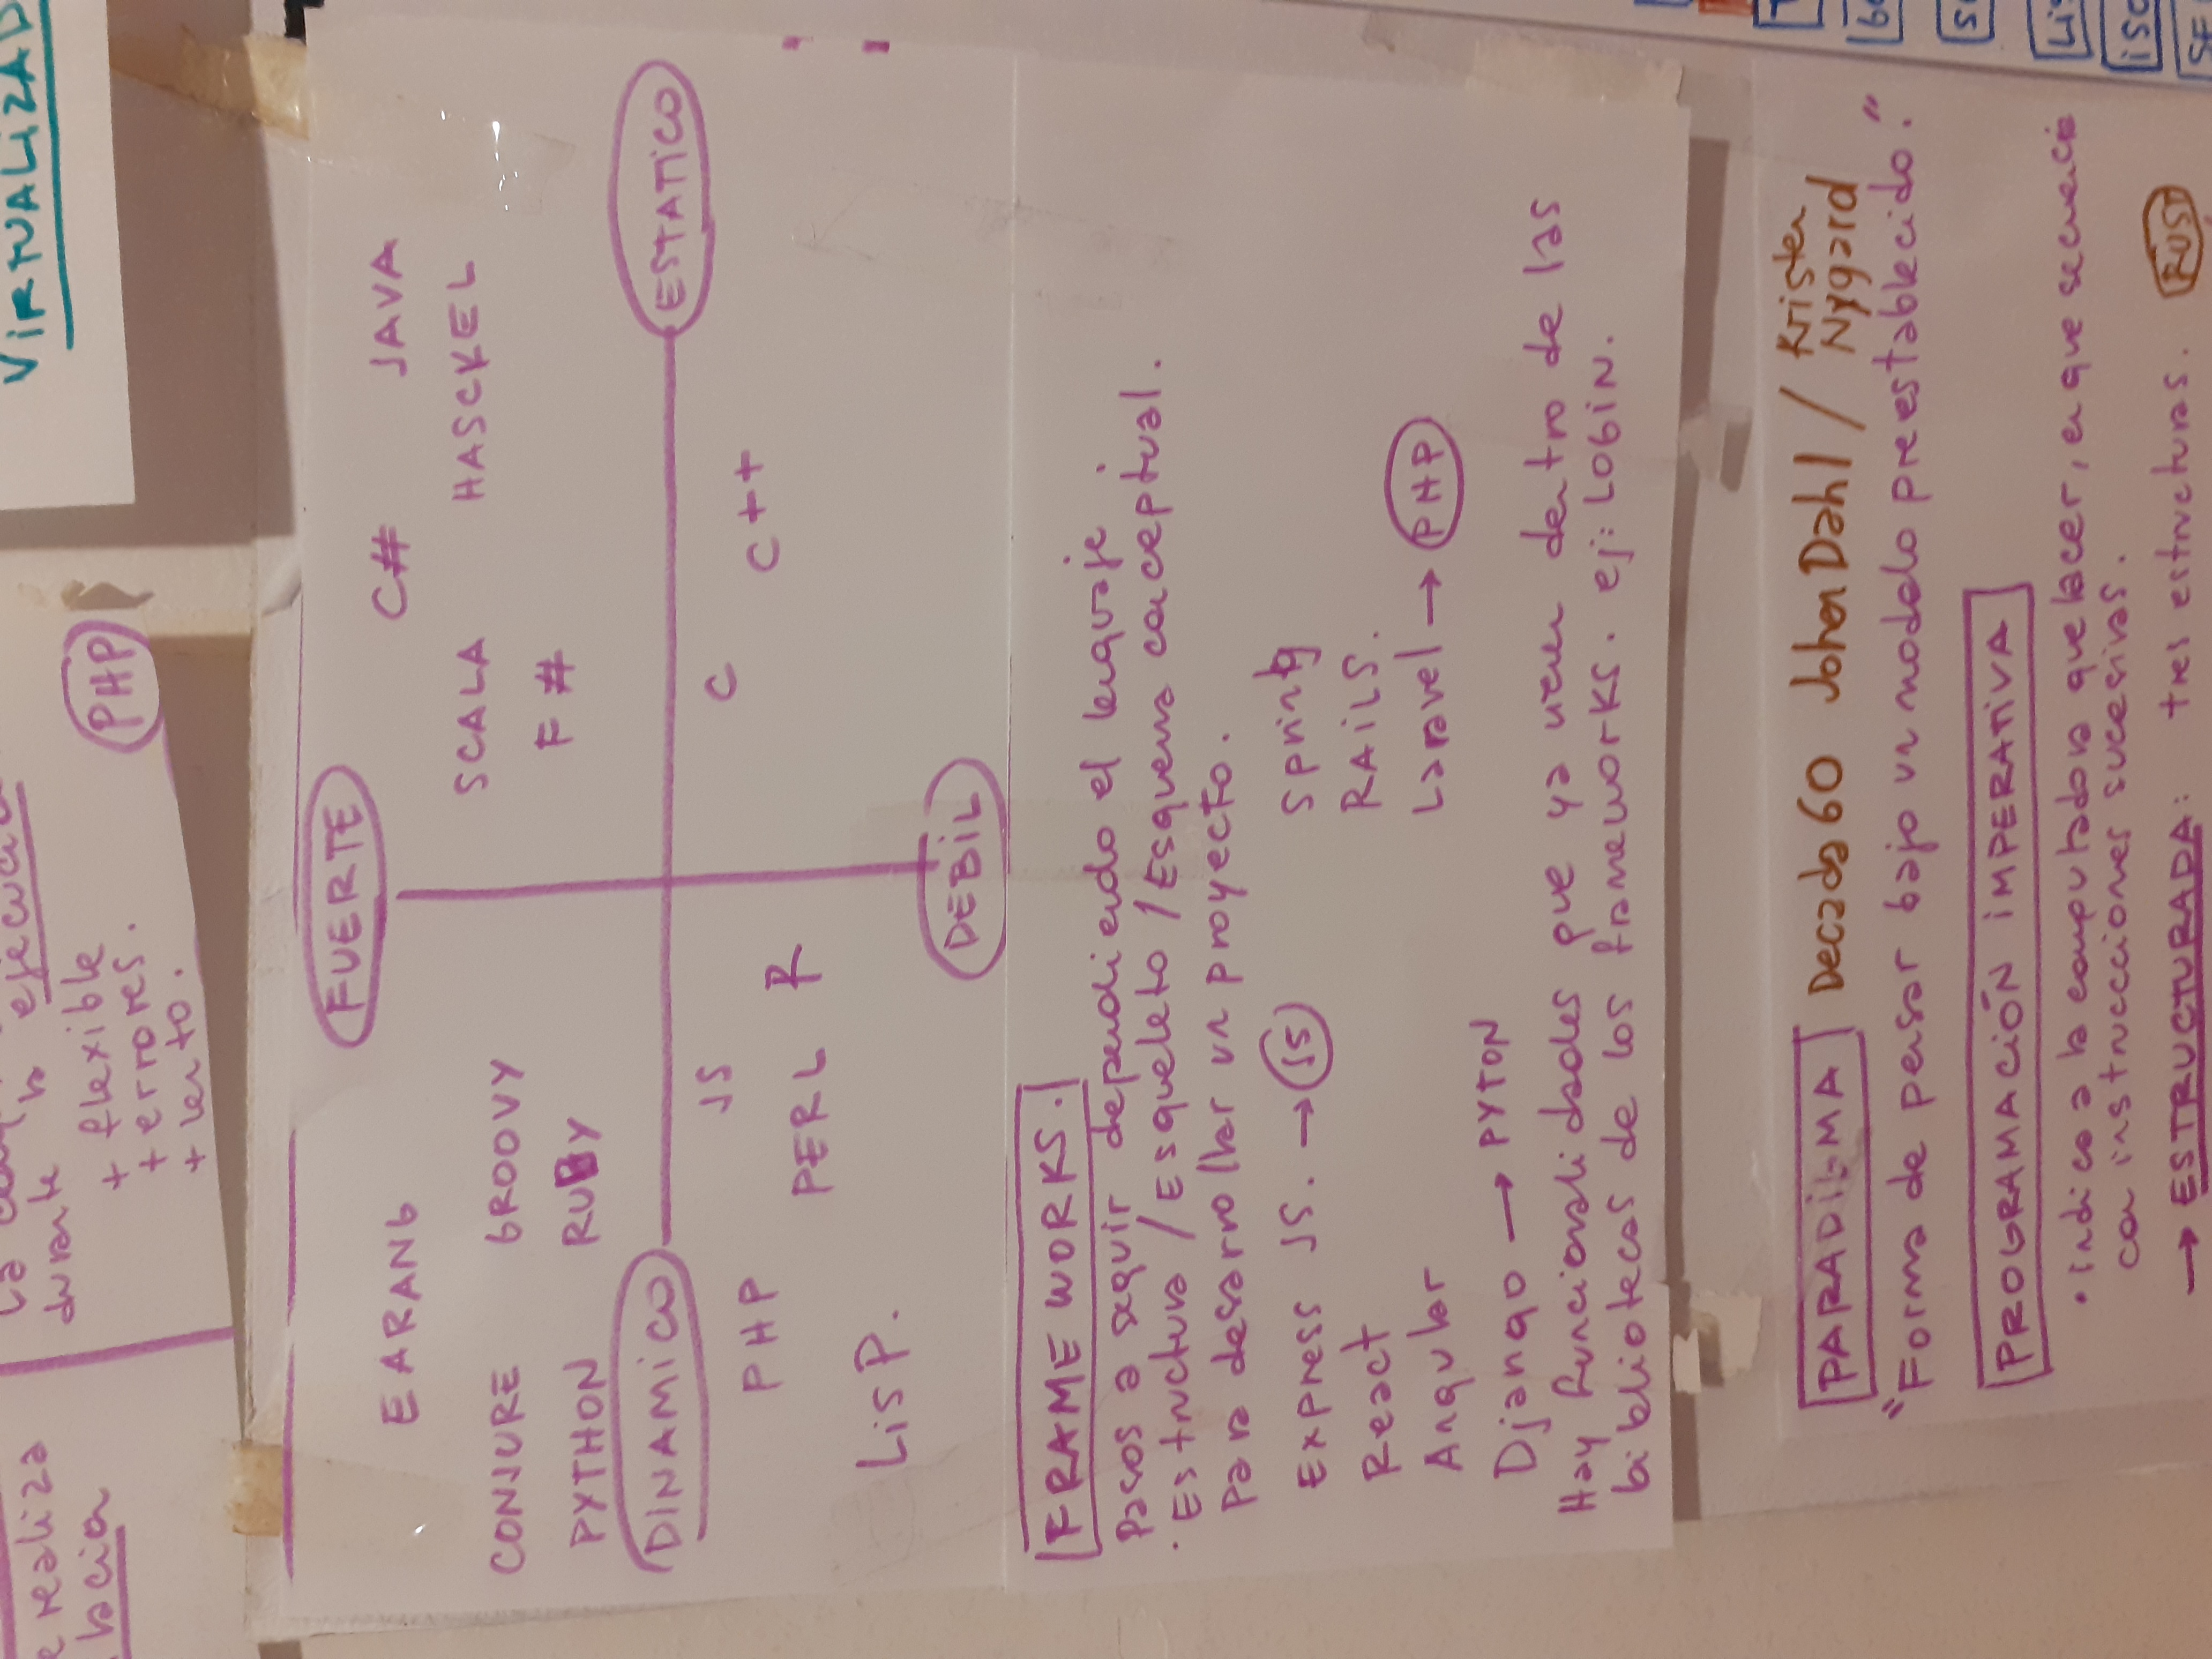 e realiza
durante la ejecución
+ flexible
+ errores.
+ lento.
PHP
VIRTUALIZAD
FUERTE
EARANG
C# JAVA
SCALA HASCKEL
CONJURE GROOVY
F#
PYTHON RUBY
DINAMICO
ESTATICO
JS
C
PHP
C++
PERL R
LisP.
DEBIL
FRAME WORKS.
Pasos a seguir dependiendo el lenguaje.
· Estructura / Esqueleto / Esquema conceptual.
Para desarrollar un proyecto.
Express JS. → JS
Spring
React
RAILS.
Angular
Laravel → PHP
Django → PYTON
Hay funcionalidades que ya vienen dentro de las
bibliotecas de los frameworks. ej: LOGIN.
PARADIGMA Decada 60 Johen Dahl / Kristen
Nygard
"Forma de pensar bajo un modelo preestablecido."
PROGRAMACIÓN IMPERATIVA
• indico a la computadora que hacer, en que secuencia
con instruccciones sucesivas.
→ ESTRUCTURADA: tres estructuras. RUST